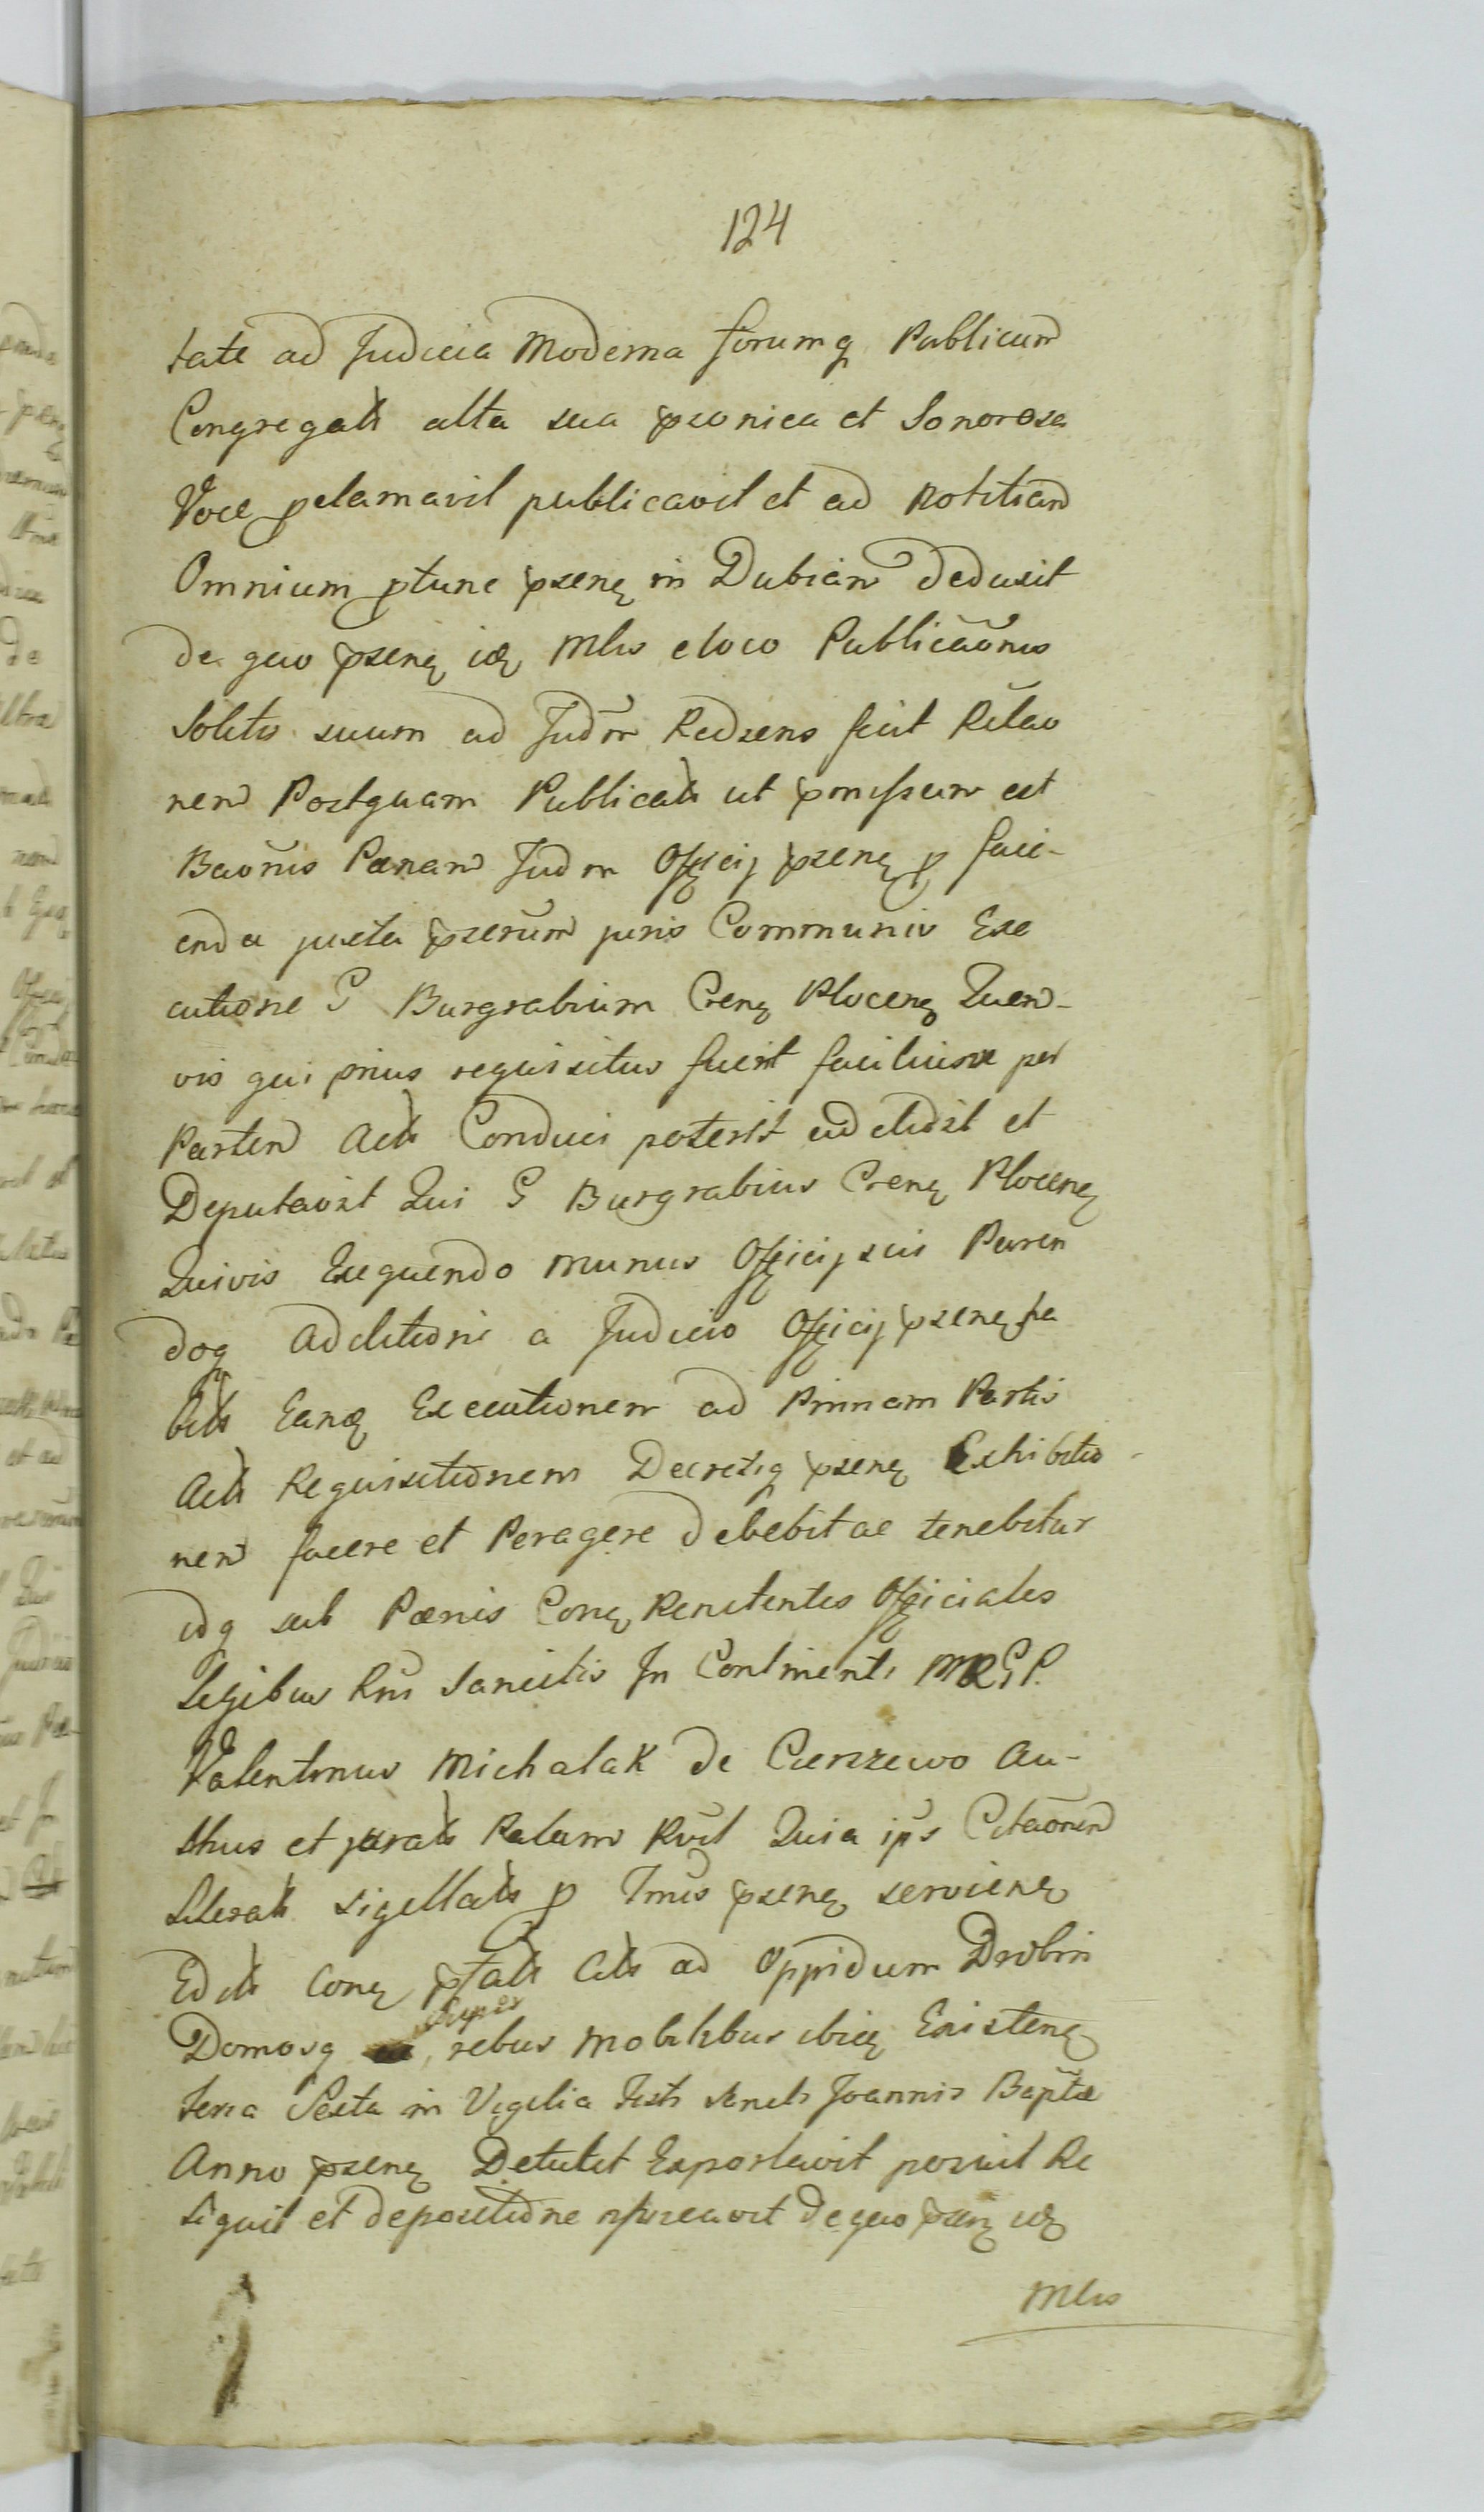 124
tate ad Judicia Moderna forumq Publicum
Congregatt alta sua pconica et Sonorosa
Voce pclamavit publicavit et ad notitiam
Omnium ptunc psenq in Dubiam deduxit
de quo psenq idq Mlis e loco Publicaōnis
Solitis suum ad Judm Rediens fecit Relao
nem Postquam Publicatt ut pmissum est
Baōnis Pænam Judm Officij psenq p faci-
enda juxta pserūm juris Communis Exe
cutione G Burgrabium Crenq Plocenq Quem-
vis qui prius requisitus fuerit faciliusve per
Partem Actt Conduci poterit addidit et
Deputavit Qui G Burgrabius Crenq Plocenq
Quivis Exequendo munus Officij sui Paren
doq additioni a Judicio Officij psenq fa
ctt Eanq Executionem ad Primam Partis
Actt Requisitionem Decretiq psenq Exhibitio-
nem facere et Peragere debebit ac tenebitur
idq sub Pænis Conq Renitentes Officiales
Legibus Rni Sancitis In Continenti MRGP.
Valentinus Michalak de Cierszewo Au-
thus et juratt Palam Rvit Quia ips Citaōnem
Literatt Sigillatt p Tmis psenq servienq
Editt Conq pfatt Citt ad Oppidum Drobin
Domosq super rebus Mobilibus ibidq Existenq
feria Sexta in Vigilia festi Sancti Joannis Baptæ
Anno psenq Detulit Exportavit posuit Re
liquit et depositione de quo psenq idq
Mlis